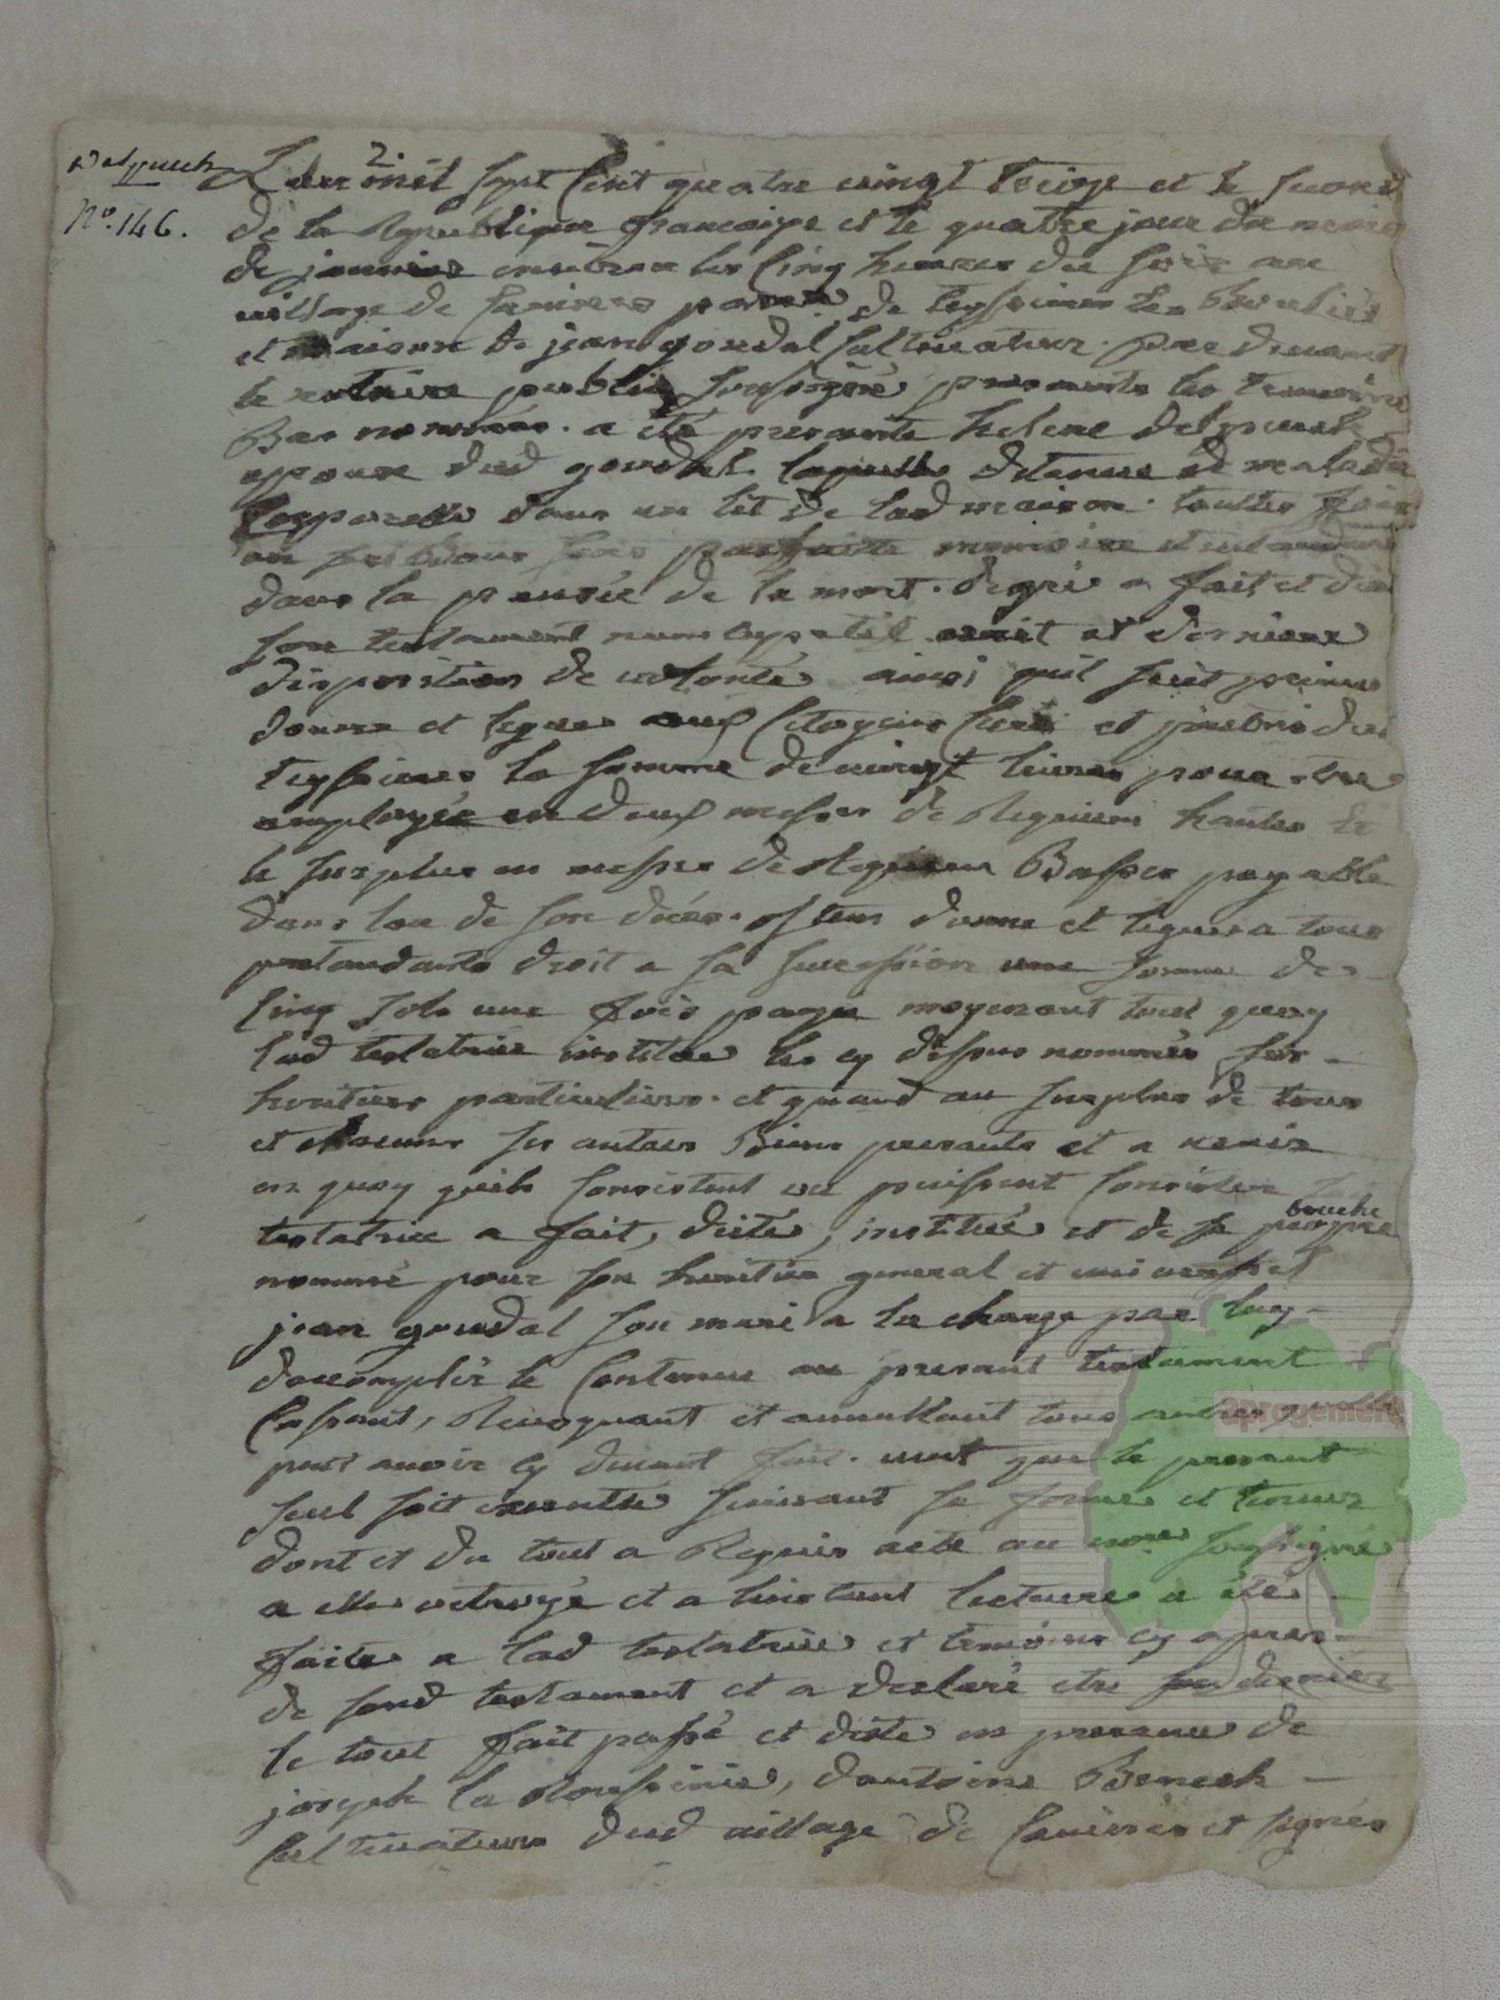 Delpuech
N°. 146.
2.
L'an mil sept cent quatre vingt treize et le second
de la Republique francaise et le quatre jour du mois
de janvier environ les cinq heures du soir au
village de paroisse de teyssieres les
et maison de jean goudal cultivateur. par devant
le notaire public soussigné presants les temoins
Bas nommés. a été presante helene delpuech
epouse dud goudal laquelle detenue de maladie
Corporelle dans un lit de lad maison. touttes fois
en ses bons sens parfaite memoire et entandem
dans la pensée de la mort. de gré a fait et
son testament noncupatif ecrit et derniere
disposition de volonté ainsi quil suit
donne et legue aux Citoyens Curé et
teyssieres la somme de vingt livres pour etre
employée en deux messes de Requiem hautes et
le surplus en messes de Requiem Basses payable
dans lan de son décés. Item donne et legue a tous
pretandants droit a sa succession une somme de
cinq sols une fois payée moyenant tout quoy
lad testatrice institue les cy dessus nommés ses
heritiers particuliers. et quand au surplus de tous
et chacuns ses autres Biens presants et a venir
en quoy quils consistent ou puissent consister
testatrice a fait, dicté, institué et de sa propre
bouche
nommé pour son heritier general et universsel
jean goudal son mari a la charge par luy
daccomplir le contenu au presant testament
Cassant, Revoquant et annullant tous autres
peut avoir cy devant fait. veut que le presant
seul soit executé suivant sa forme et teneur
dont et du tout a Requis acte au nore soussigné
a elle octroyé et a linstant lecture a été
faite a lad testatrice et temoins cy apres
de sond testament et a declaré etre son dernier
le tout fait passé et dicté en presence de
joseph la Roussinie, dantoine Benech
cultivateurs dud village de et signés
aprogemere